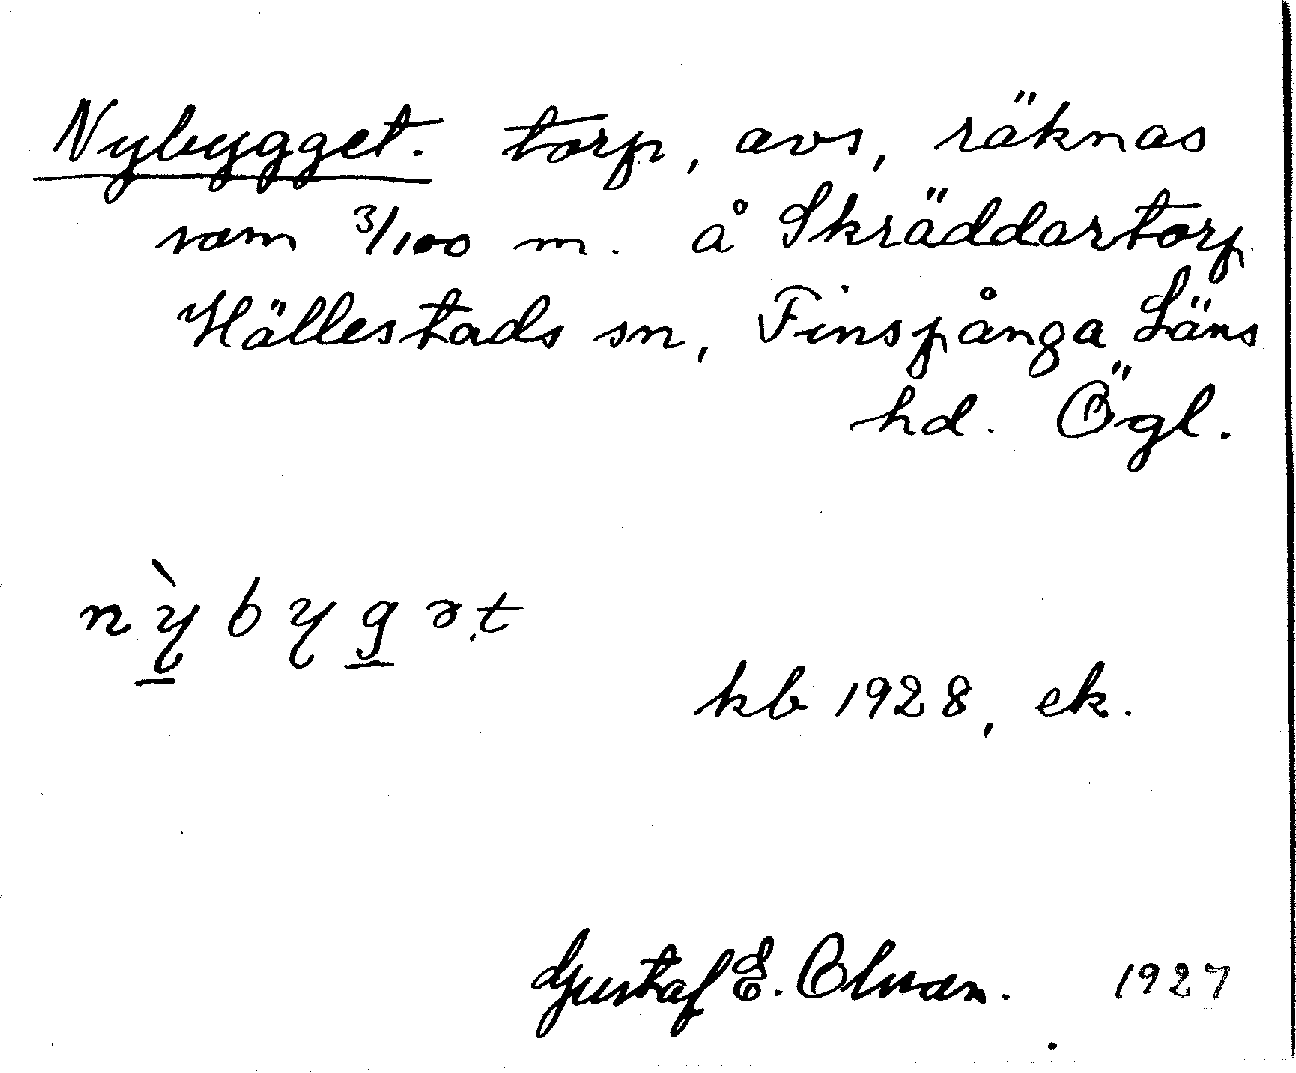 Nybygget. torp, avs, räknas
som 3/100 m. å Skräddartorp
Hällestads sn, Finspånga Läns
hd. Ögl.
nỳbygət
kb 1928, ek.
Gustaf E. Olsson. 1927